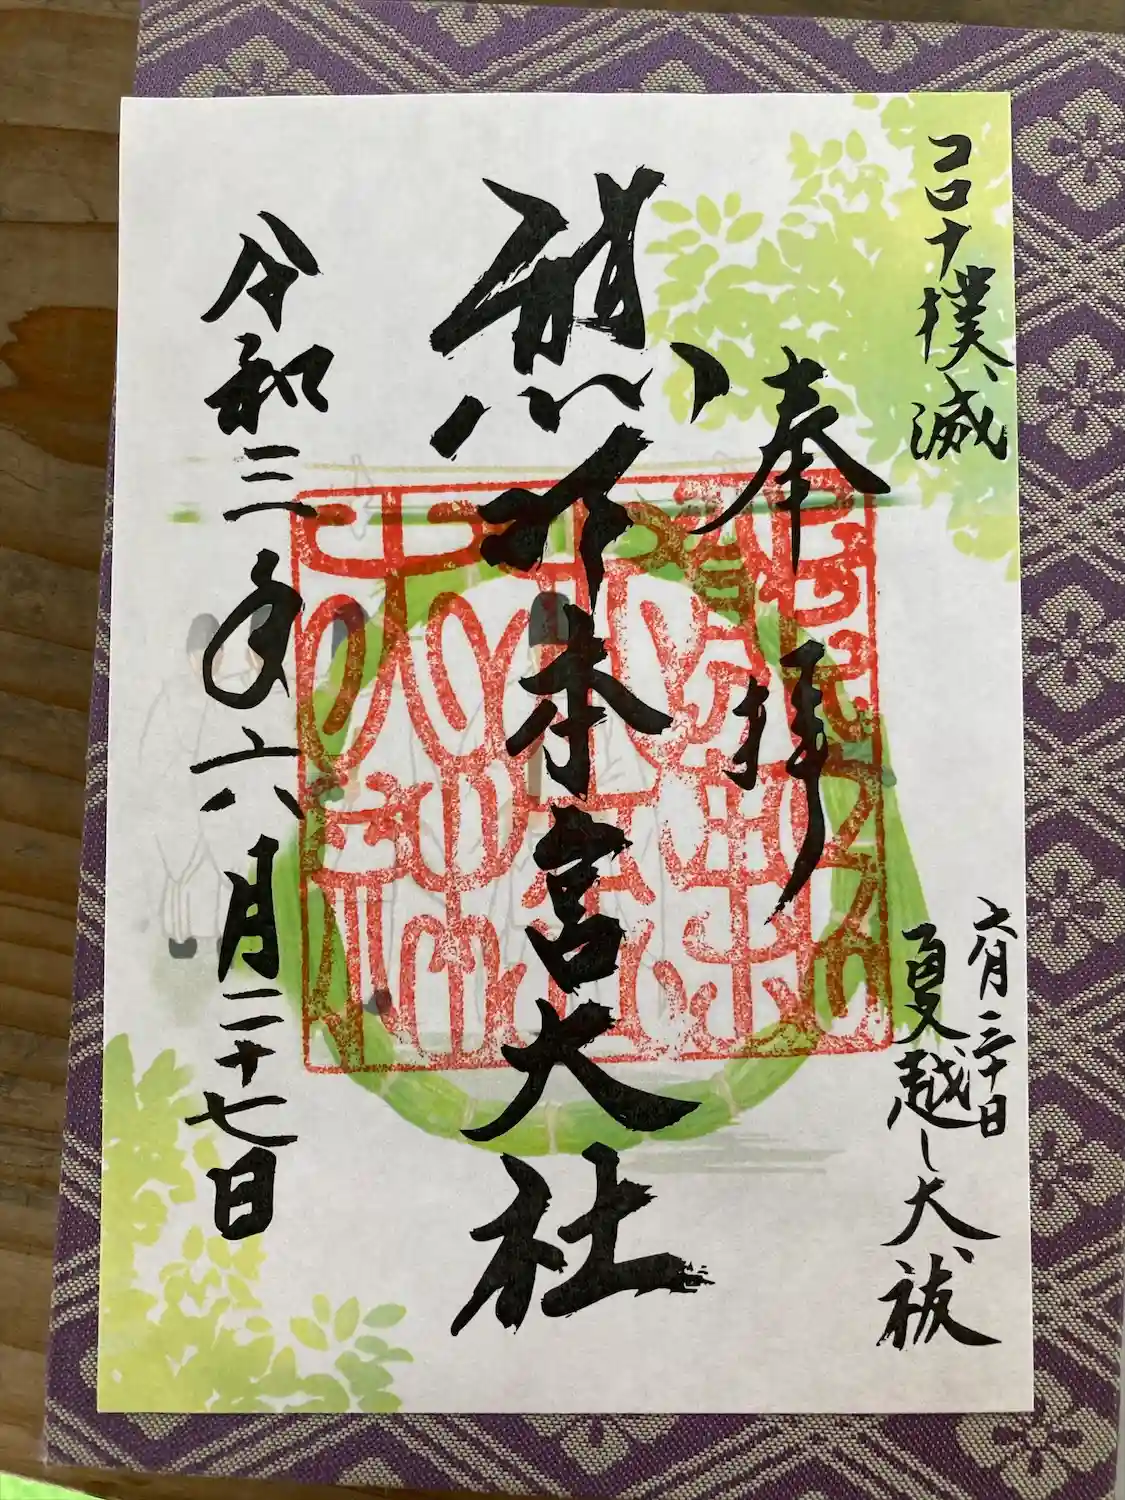 コロナ撲滅
六月三十日
夏越し大祓
奉拝
熊野本宮大社
令和三年六月二十七日